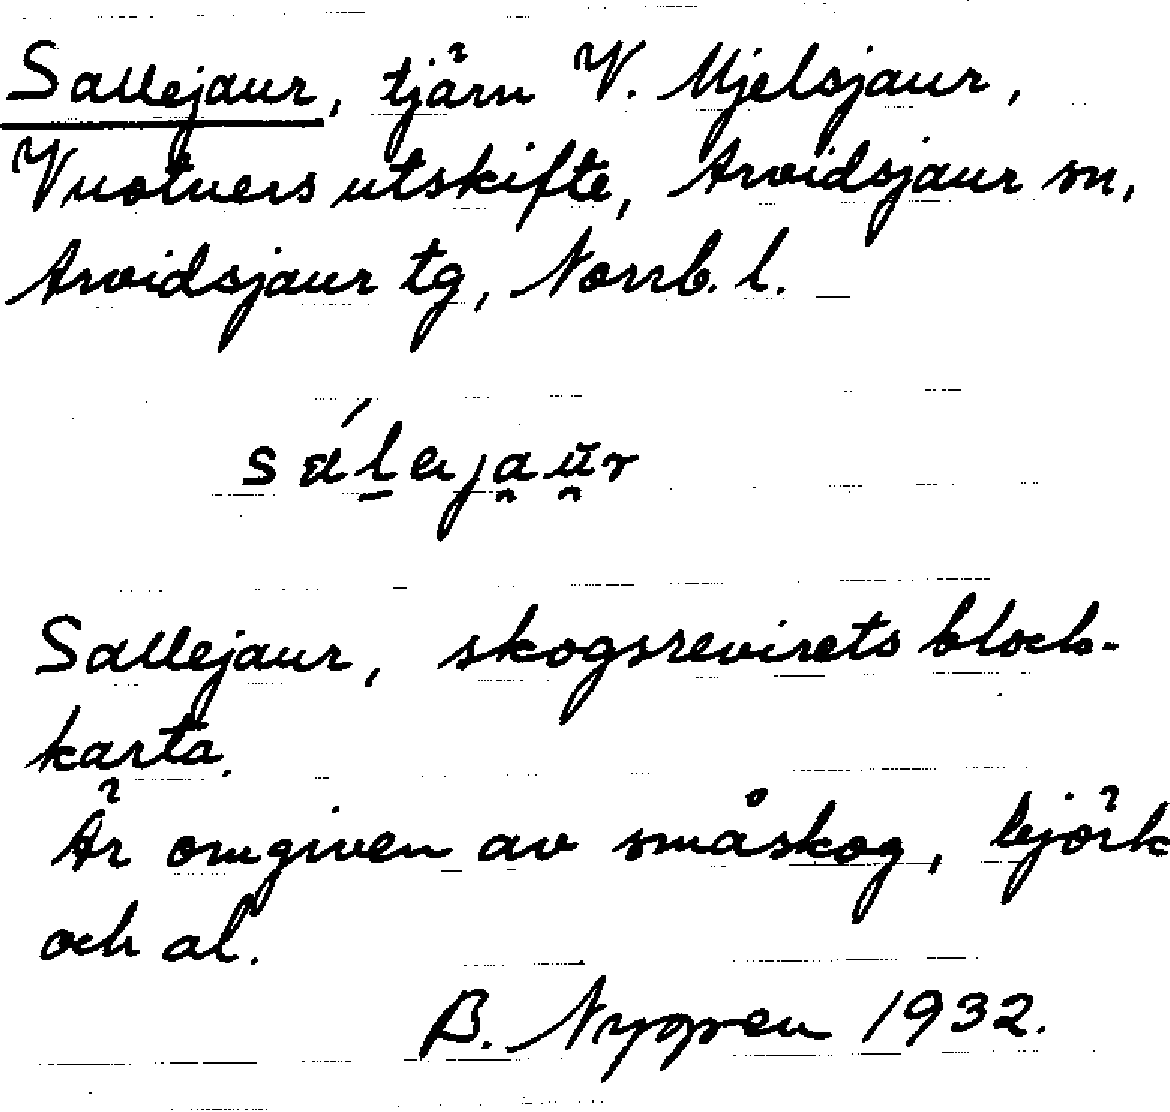 Sallejaur, tjärn V. Mjelsjaur,
Vuotners utskifte, Arvidsjaur sn,
Arvidsjaur tg, Norrb. l.
Sallejaur, skogsrevirets block-
karta.
Är omgiven av småskog, björk
och al.
B. Nygren 1932.